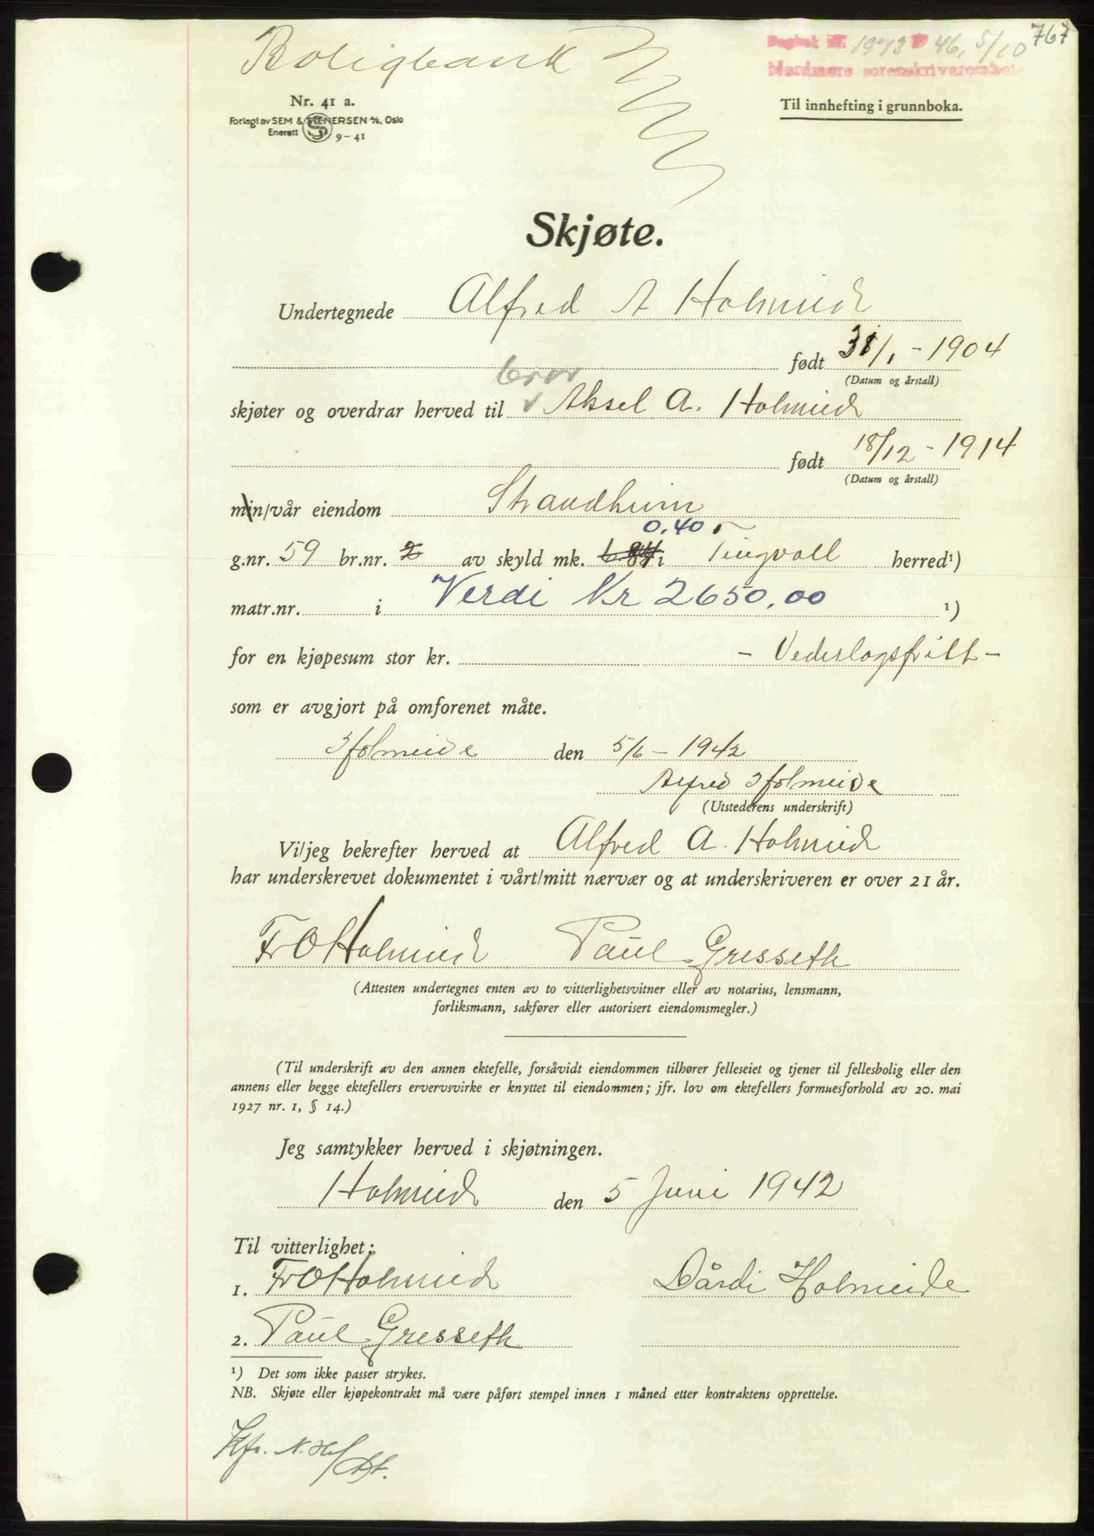 Boligbank
Dagbok nr 1978 46, 5/10 767
Nordmøre sorenskriverembete
Nr. 41 a.
Forlagt av SEM & STENERSEN A/S, Oslo
Enerett 9-41
Til innhefting i grunnboka.
Skjøte.
Undertegnede Alfred A Holmeide
født 31/1 - 1904
(Datum og årstall)
bror
skjøter og overdrar herved til Aksel A. Holmeide
født 18/12 - 1914
(Datum og årstall)
min/vår eiendom Strandheim
0.40
g.nr. 59 br.nr. 2 av skyld mk. i Tingvoll herred¹)
matr.nr. i Verdi Kr 2650,00 ¹)
for en kjøpesum stor kr. - Vederlagsfritt -
som er avgjort på omforenet måte.
Holmeide den 5/6 - 1942
Alfred Holmeide
(Utstederens underskrift)
Vi/jeg bekrefter herved at Alfred A. Holmeide
har underskrevet dokumentet i vårt/mitt nærvær og at underskriveren er over 21 år.
Fr O Holmeide Paul Gresseth
(Attesten undertegnes enten av to vitterlighetsvitner eller av notarius, lensmann,
forliksmann, sakfører eller autorisert eiendomsmegler.)
(Til underskrift av den annen ektefelle, forsåvidt eiendommen tilhører felleseiet og tjener til fellesbolig eller den
annens eller begge ektefellers ervervsvirke er knyttet til eiendommen; jfr. lov om ektefellers formuesforhold av 20. mai
1927 nr. 1, § 14.)
Jeg samtykker herved i skjøtningen.
Holmeide den 5 Juni 1942
Til vitterlighet:
1. Fr O Holmeide Dårdi Holmeide
2. Paul Gresseth
¹) Det som ikke passer strykes.
NB. Skjøte eller kjøpekontrakt må være påført stempel innen 1 måned etter kontraktens opprettelse.